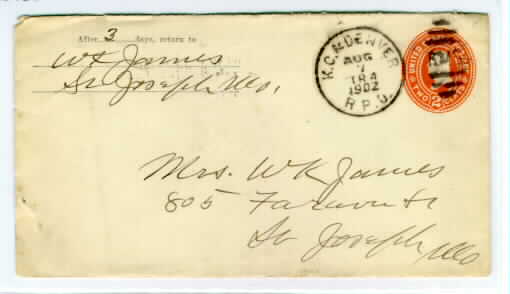 After 3 days, return to
W K James
St Joseph Mo.
K.C. & DENVER
AUG
7
TR 4
1902
R.P.O.
UNITED
TWO CENTS
2
Mrs. W K James
805 Faraon St
St Joseph Mo